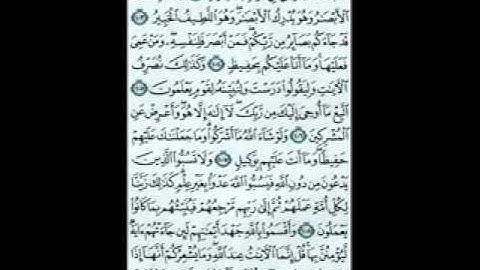 ٱلۡأَبۡصَٰرُ وَهُوَ يُدۡرِكُ ٱلۡأَبۡصَٰرَۖ وَهُوَ ٱللَّطِيفُ ٱلۡخَبِيرُ ١٠٣
قَدۡ جَآءَكُم بَصَآئِرُ مِن رَّبِّكُمۡۖ فَمَنۡ أَبۡصَرَ فَلِنَفۡسِهِۦۖ وَمَنۡ عَمِيَ
فَعَلَيۡهَاۚ وَمَآ أَنَا۠ عَلَيۡكُم بِحَفِيظٖ ١٠٤ وَكَذَٰلِكَ نُصَرِّفُ
ٱلۡأٓيَٰتِ وَلِيَقُولُواْ دَرَسۡتَ وَلِنُبَيِّنَهُۥ لِقَوۡمٖ يَعۡلَمُونَ ١٠٥
ٱتَّبِعۡ مَآ أُوحِيَ إِلَيۡكَ مِن رَّبِّكَۖ لَآ إِلَٰهَ إِلَّا هُوَۖ وَأَعۡرِضۡ عَنِ
ٱلۡمُشۡرِكِينَ ١٠٦ وَلَوۡ شَآءَ ٱللَّهُ مَآ أَشۡرَكُواْۗ وَمَا جَعَلۡنَٰكَ عَلَيۡهِمۡ
حَفِيظٗاۖ وَمَآ أَنتَ عَلَيۡهِم بِوَكِيلٖ ١٠٧ وَلَا تَسُبُّواْ ٱلَّذِينَ
يَدۡعُونَ مِن دُونِ ٱللَّهِ فَيَسُبُّواْ ٱللَّهَ عَدۡوَۢا بِغَيۡرِ عِلۡمٖۗ كَذَٰلِكَ زَيَّنَّا
لِكُلِّ أُمَّةٍ عَمَلَهُمۡ ثُمَّ إِلَىٰ رَبِّهِم مَّرۡجِعُهُمۡ فَيُنَبِّئُهُم بِمَا كَانُواْ
يَعۡمَلُونَ ١٠٨ وَأَقۡسَمُواْ بِٱللَّهِ جَهۡدَ أَيۡمَٰنِهِمۡ لَئِن جَآءَتۡهُمۡ ءَايَةٞ
لَّيُؤۡمِنُنَّ بِهَاۚ قُلۡ إِنَّمَا ٱلۡأٓيَٰتُ عِندَ ٱللَّهِۖ وَمَا يُشۡعِرُكُمۡ أَنَّهَآ إِذَا